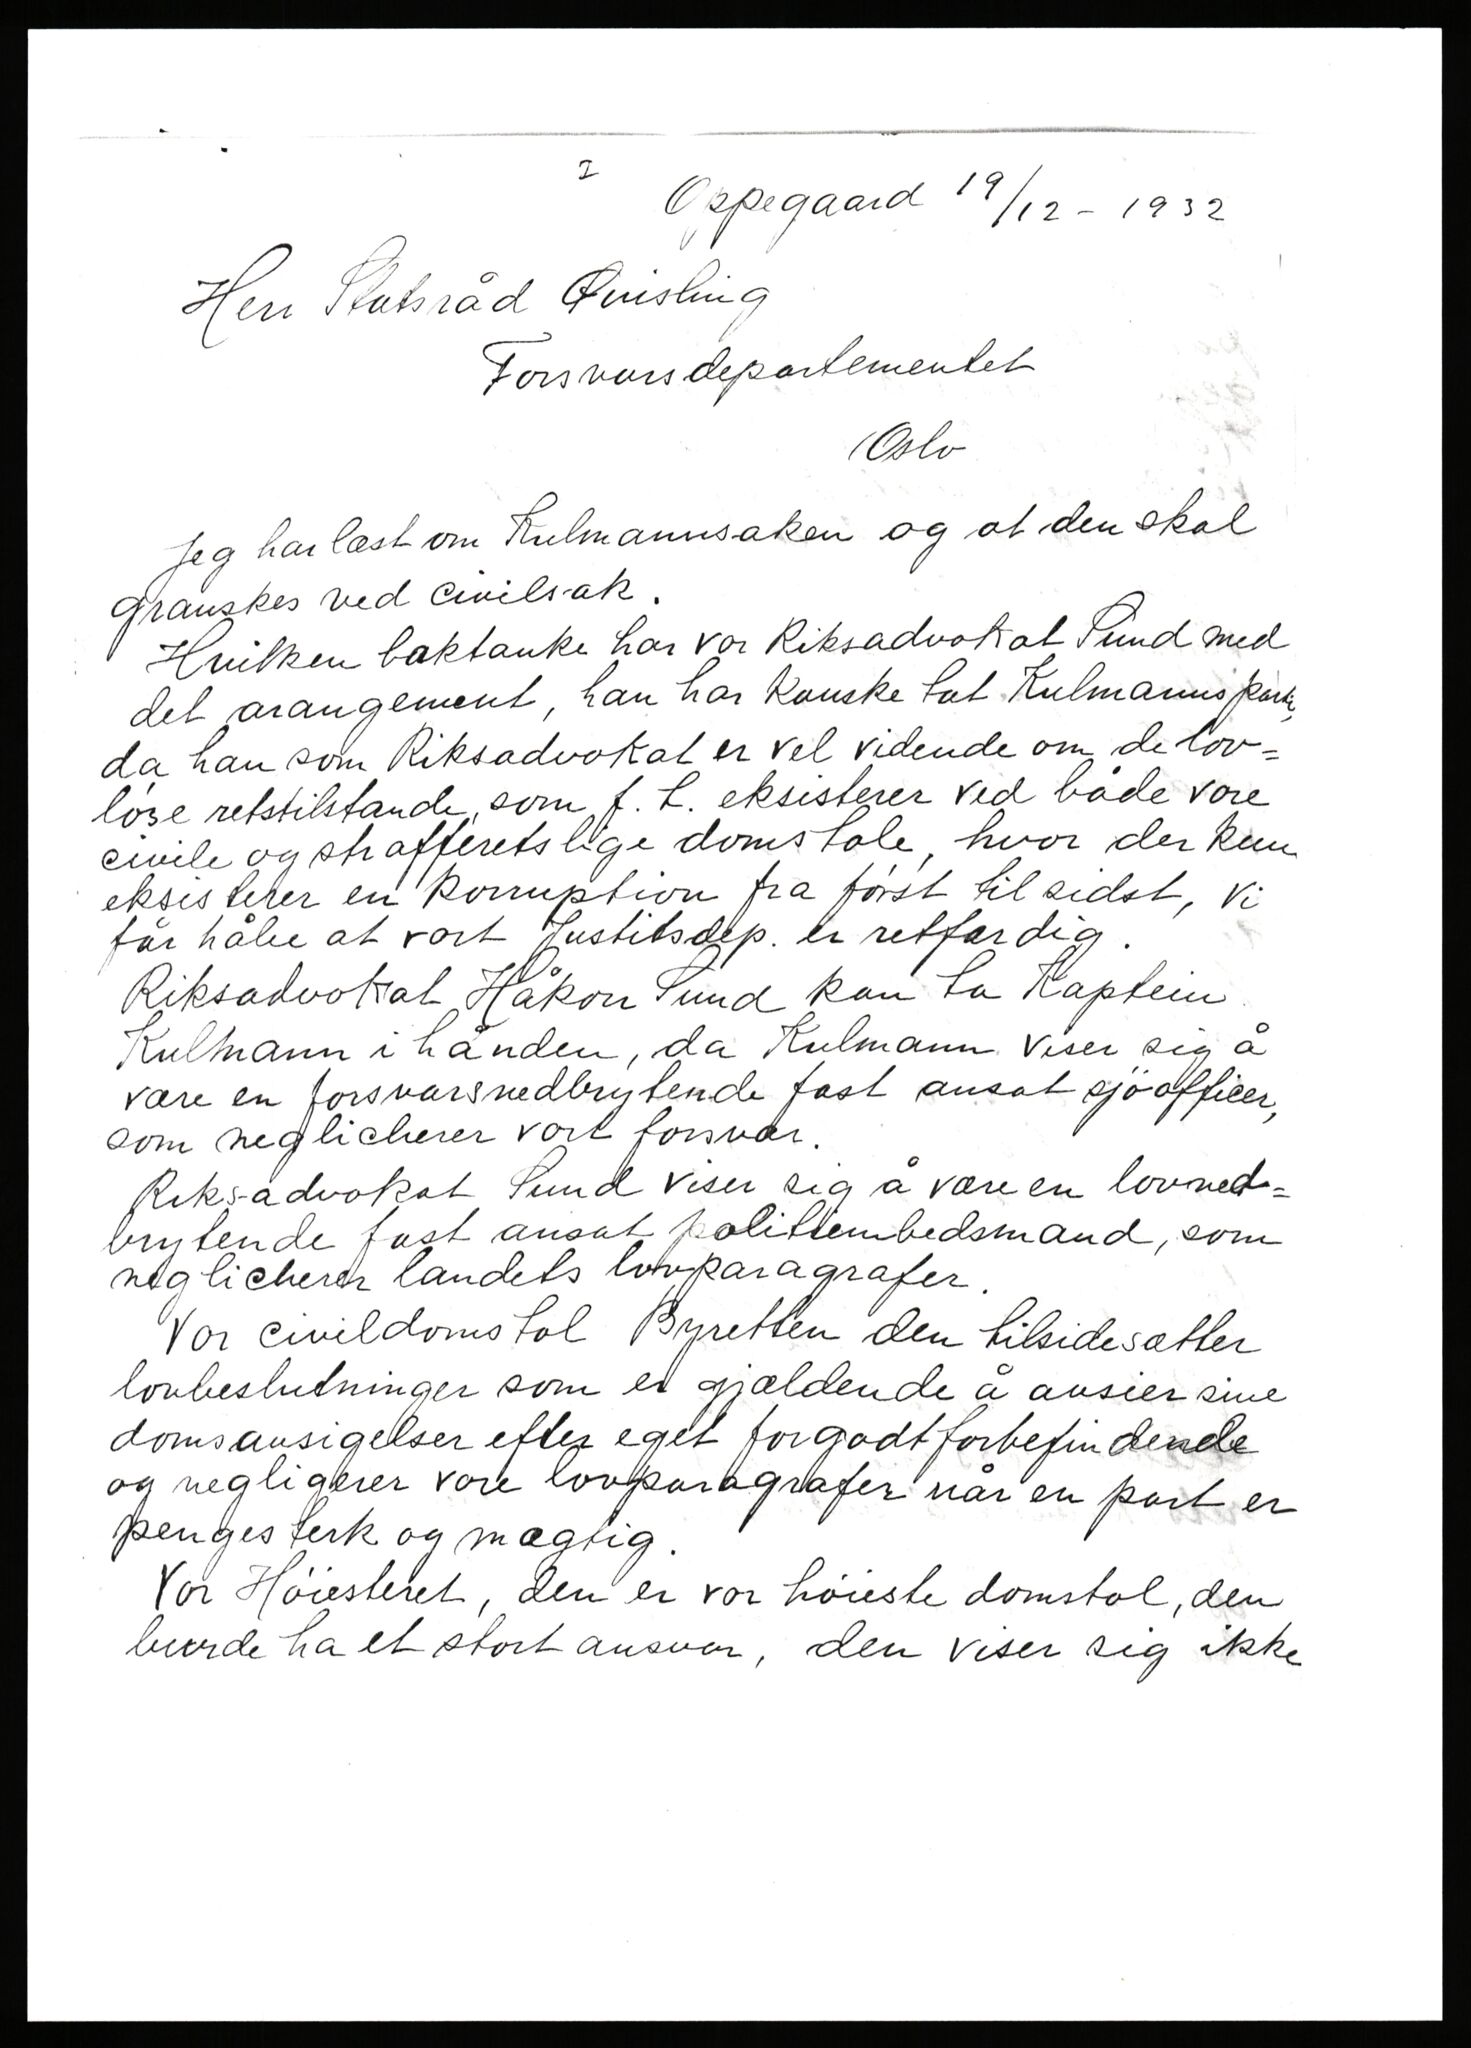 I
Oppegaard 19/12 - 1932
Herr Statsråd Quisling
Forsvarsdepartementet
Oslo
Jeg har læst om Kulmannsaken og at den skal
granskes ved civilsak.
Hvilken baktanke har vor Riksadvokat Sund med
det arangement, han har kanske tat Kulmanns parti,
da han som Riksadvokat er vel vidende om de lov=
löse retstilstande, som f. t. eksisterer ved både vore
civile og strafferetslige domstole, hvor der kun
eksisterer en korruption fra först til sidst, vi
får håbe at vort Justitsdep. er retfærdig.
Riksadvokat Håkon Sund kan ta Kaptein
Kulmann i hånden, da Kulmann viser sig å
være en forsvarsnedbrytende fast ansat sjöofficer,
som neglicherer vort forsvar.
Riksadvokat Sund viser sig å være en lovned=
brytende fast ansat politiembedsmand, som
neglicherer landets lovparagrafer.
Vor civildomstol Byretten den tilsidesætter
lovbeslutninger som er gjældende å avsier sine
domsavsigelser efter eget forgodtforbefindende
og negligerer vore lovparagrafer når en part er
pengesterk og mægtig.
Vor Höiesteret, den er vor höieste domstol, den
burde ha et stort ansvar, den viser sig ikke